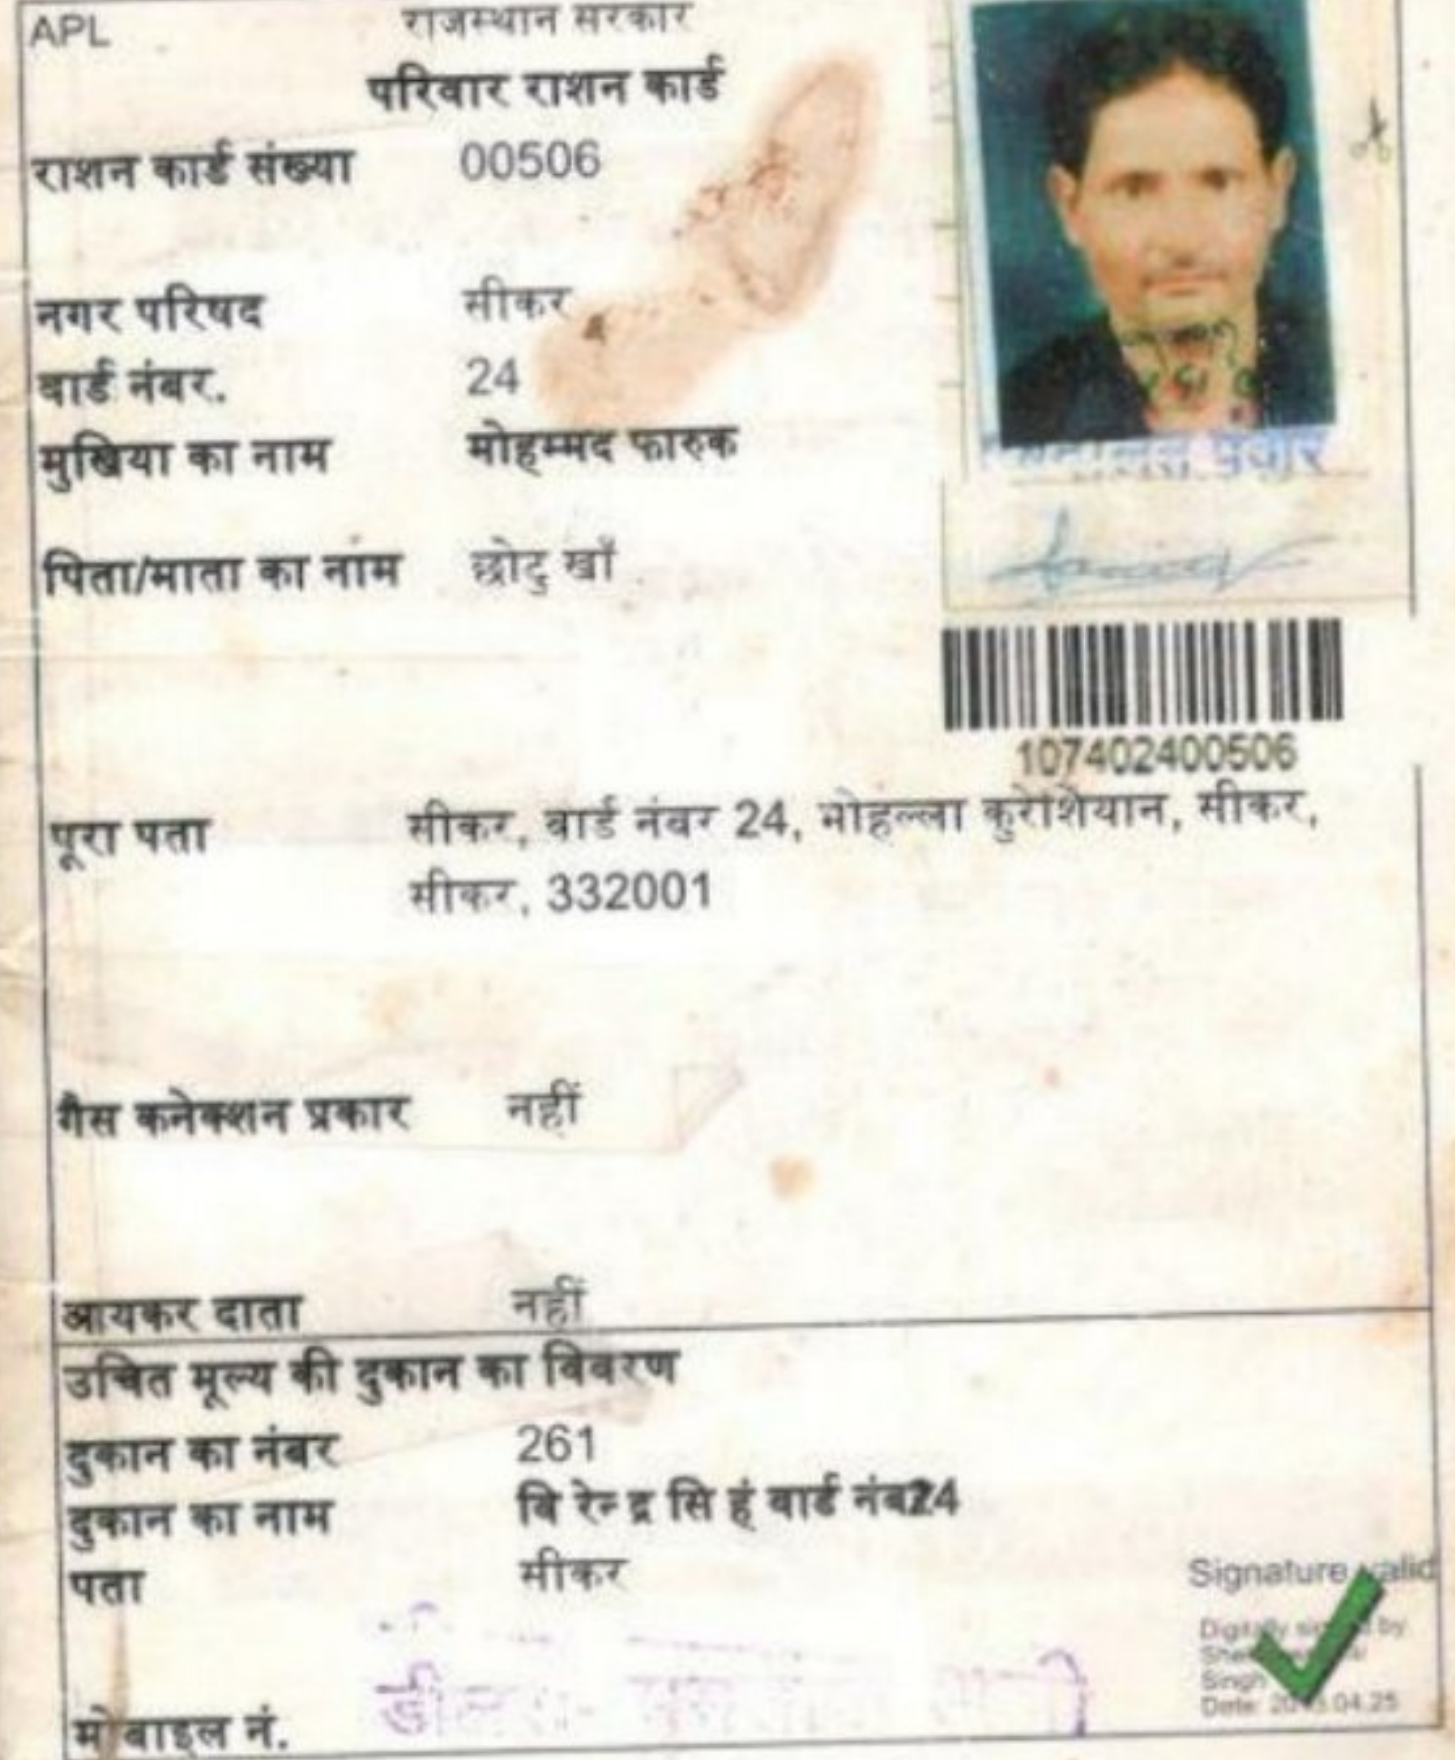 APL
राजस्थान सरकार
परिवार राशन कार्ड
राशन कार्ड संख्या 00506
नगर परिषद सीकर
वार्ड नंबर. 24
मुखिया का नाम मोहम्मद फारुक
पिता/माता का नाम छोटु खाँ
107402400506
पूरा पता सीकर, वार्ड नंबर 24, मोहल्ला कुरेशियान, सीकर,
सीकर, 332001
गैस कनेक्शन प्रकार नहीं
आयकर दाता नहीं
उचित मूल्य की दुकान का विवरण
दुकान का नंबर 261
दुकान का नाम वि रेन्द्र सि हं वार्ड नंब24
पता सीकर
Signature valid
Digitally signed by
Singh
Date: 04.25
मोबाइल नं.